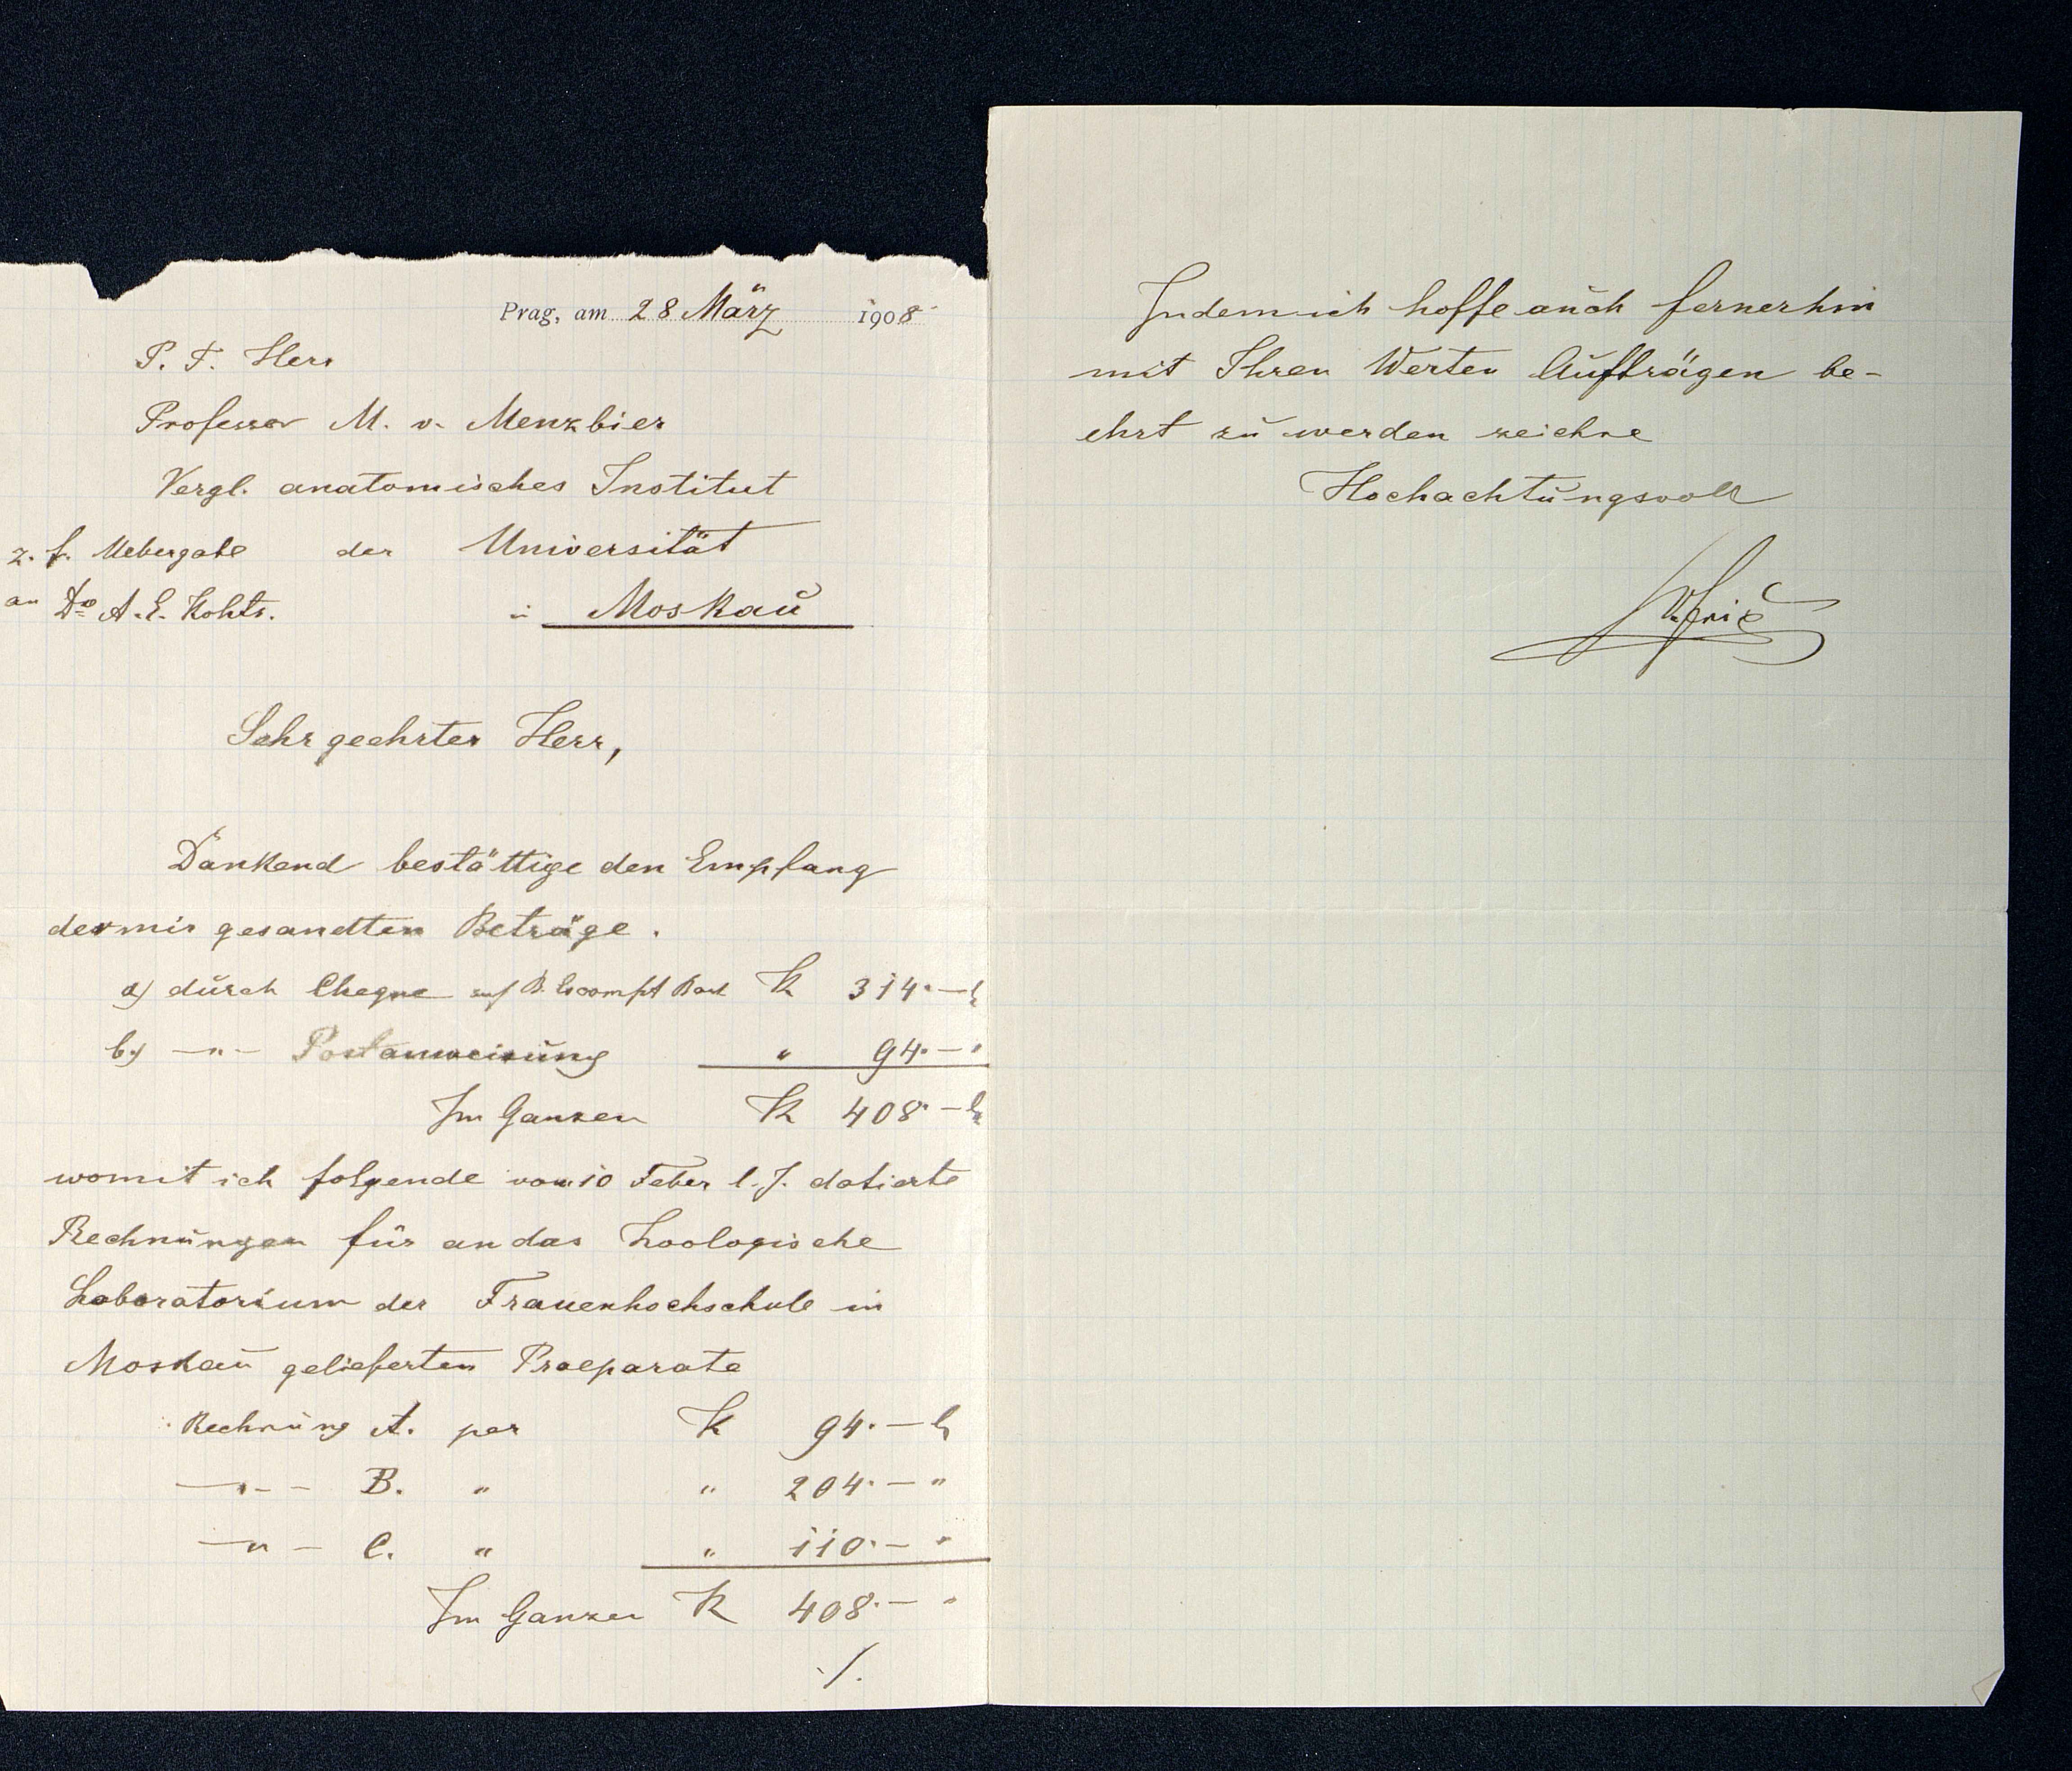 Prag, am 28 März 1908
P. T. Herr
Professor M. v. Menzbier
Vergl. anatomisches Institut
z. f. Uebergabe der Universität
an Dr A. E. Kohts. in Moskau
Sehr geehrter Herr,
Dankend bestättige den Empfang
der mir gesandten Beträge.
a) durch Cheque auf B. Escompt Bank K 314.— h
b.) —"— Postanweisung " 94.— "
Im Ganzen K 408.— h
womit ich folgende vom 10 Feber l. J. datierte
Rechnungen für an das Zoologische
Laboratorium der Frauenhochschule in
Moskau gelieferten Praeparate
Rechnung A. per K 94.— h
—"— B. " " 204.— "
—"— C. " " 110.— "
Im Ganzen K 408.— "
./.
Indem ich hoffe auch fernerhin
mit Ihren Werten Aufträgen be-
ehrt zu werden zeichne
Hochachtungsvoll
V. Frič